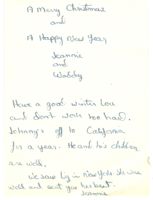 A Merry Christmas
and
A Happy New Year
Jeannie
and
Have a good winter Lou
and don't work too hard.
Johnny's off to California
for a year. He and his children
are well.
We saw in New York. She was
well and sent you her best.
Jeannie